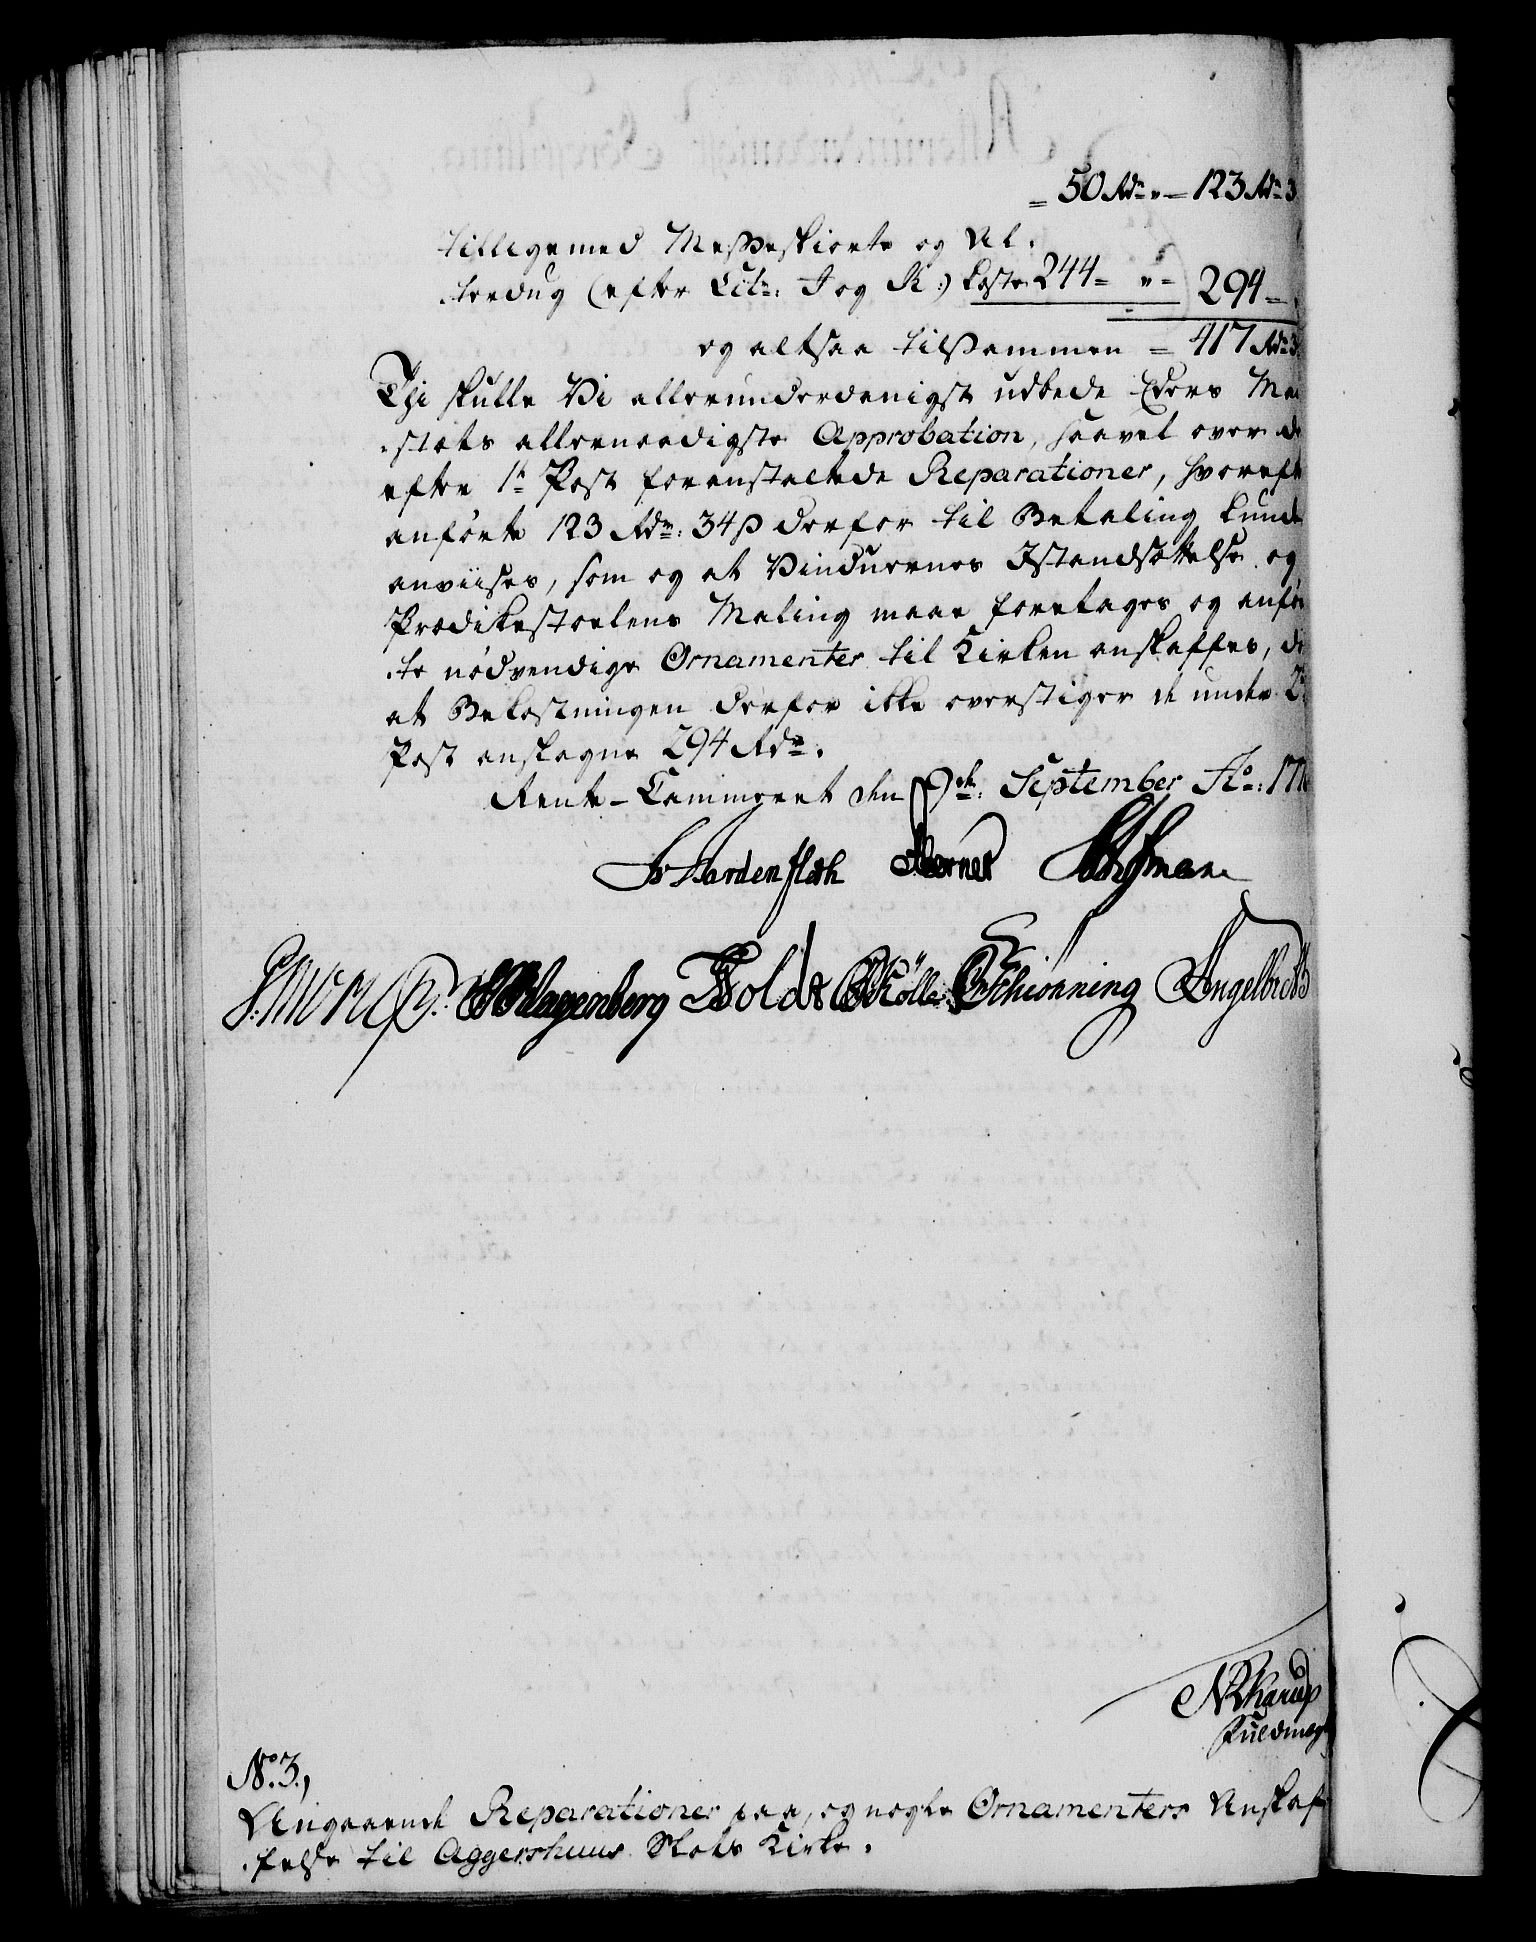 = 50 Rdr " — 123 Rdr 3
tilligemed Messeskiorte og Al-
terdug (efter Litr: J og K:) koster 244 = " = 294 =
og altsaa tilsammen = 417 Rdr 3
Thi skulle Vi allerunderdanigst udbede Eders Ma
stæts allernaadigste Approbation, saavel over de
efter 1te Post foranstaltede Reparationer, hvoreft
anførte 123 Rdr: 34 ß derfor til Betaling kunde
anviises, som og at Vinduernes Istandsættelse og
Prædikestoelens Maling maae foretages og anfør
te nødvendige Ornamenter til Kirken anskaffes, de
at Bekostningen derfor ikke overstiger de under 2
Post anslagne 294 Rdr.
Rente-Cammeret den 9de September Ao: 177
Jo Hardenfleth
G: Klagenberg Holdt Kølle Schiønning Engelbret
Nr. 3,
Angaaende Reparationer paa, og nogle Ornamenters Anskaf
felse til Aggershuus Slots Kirke.